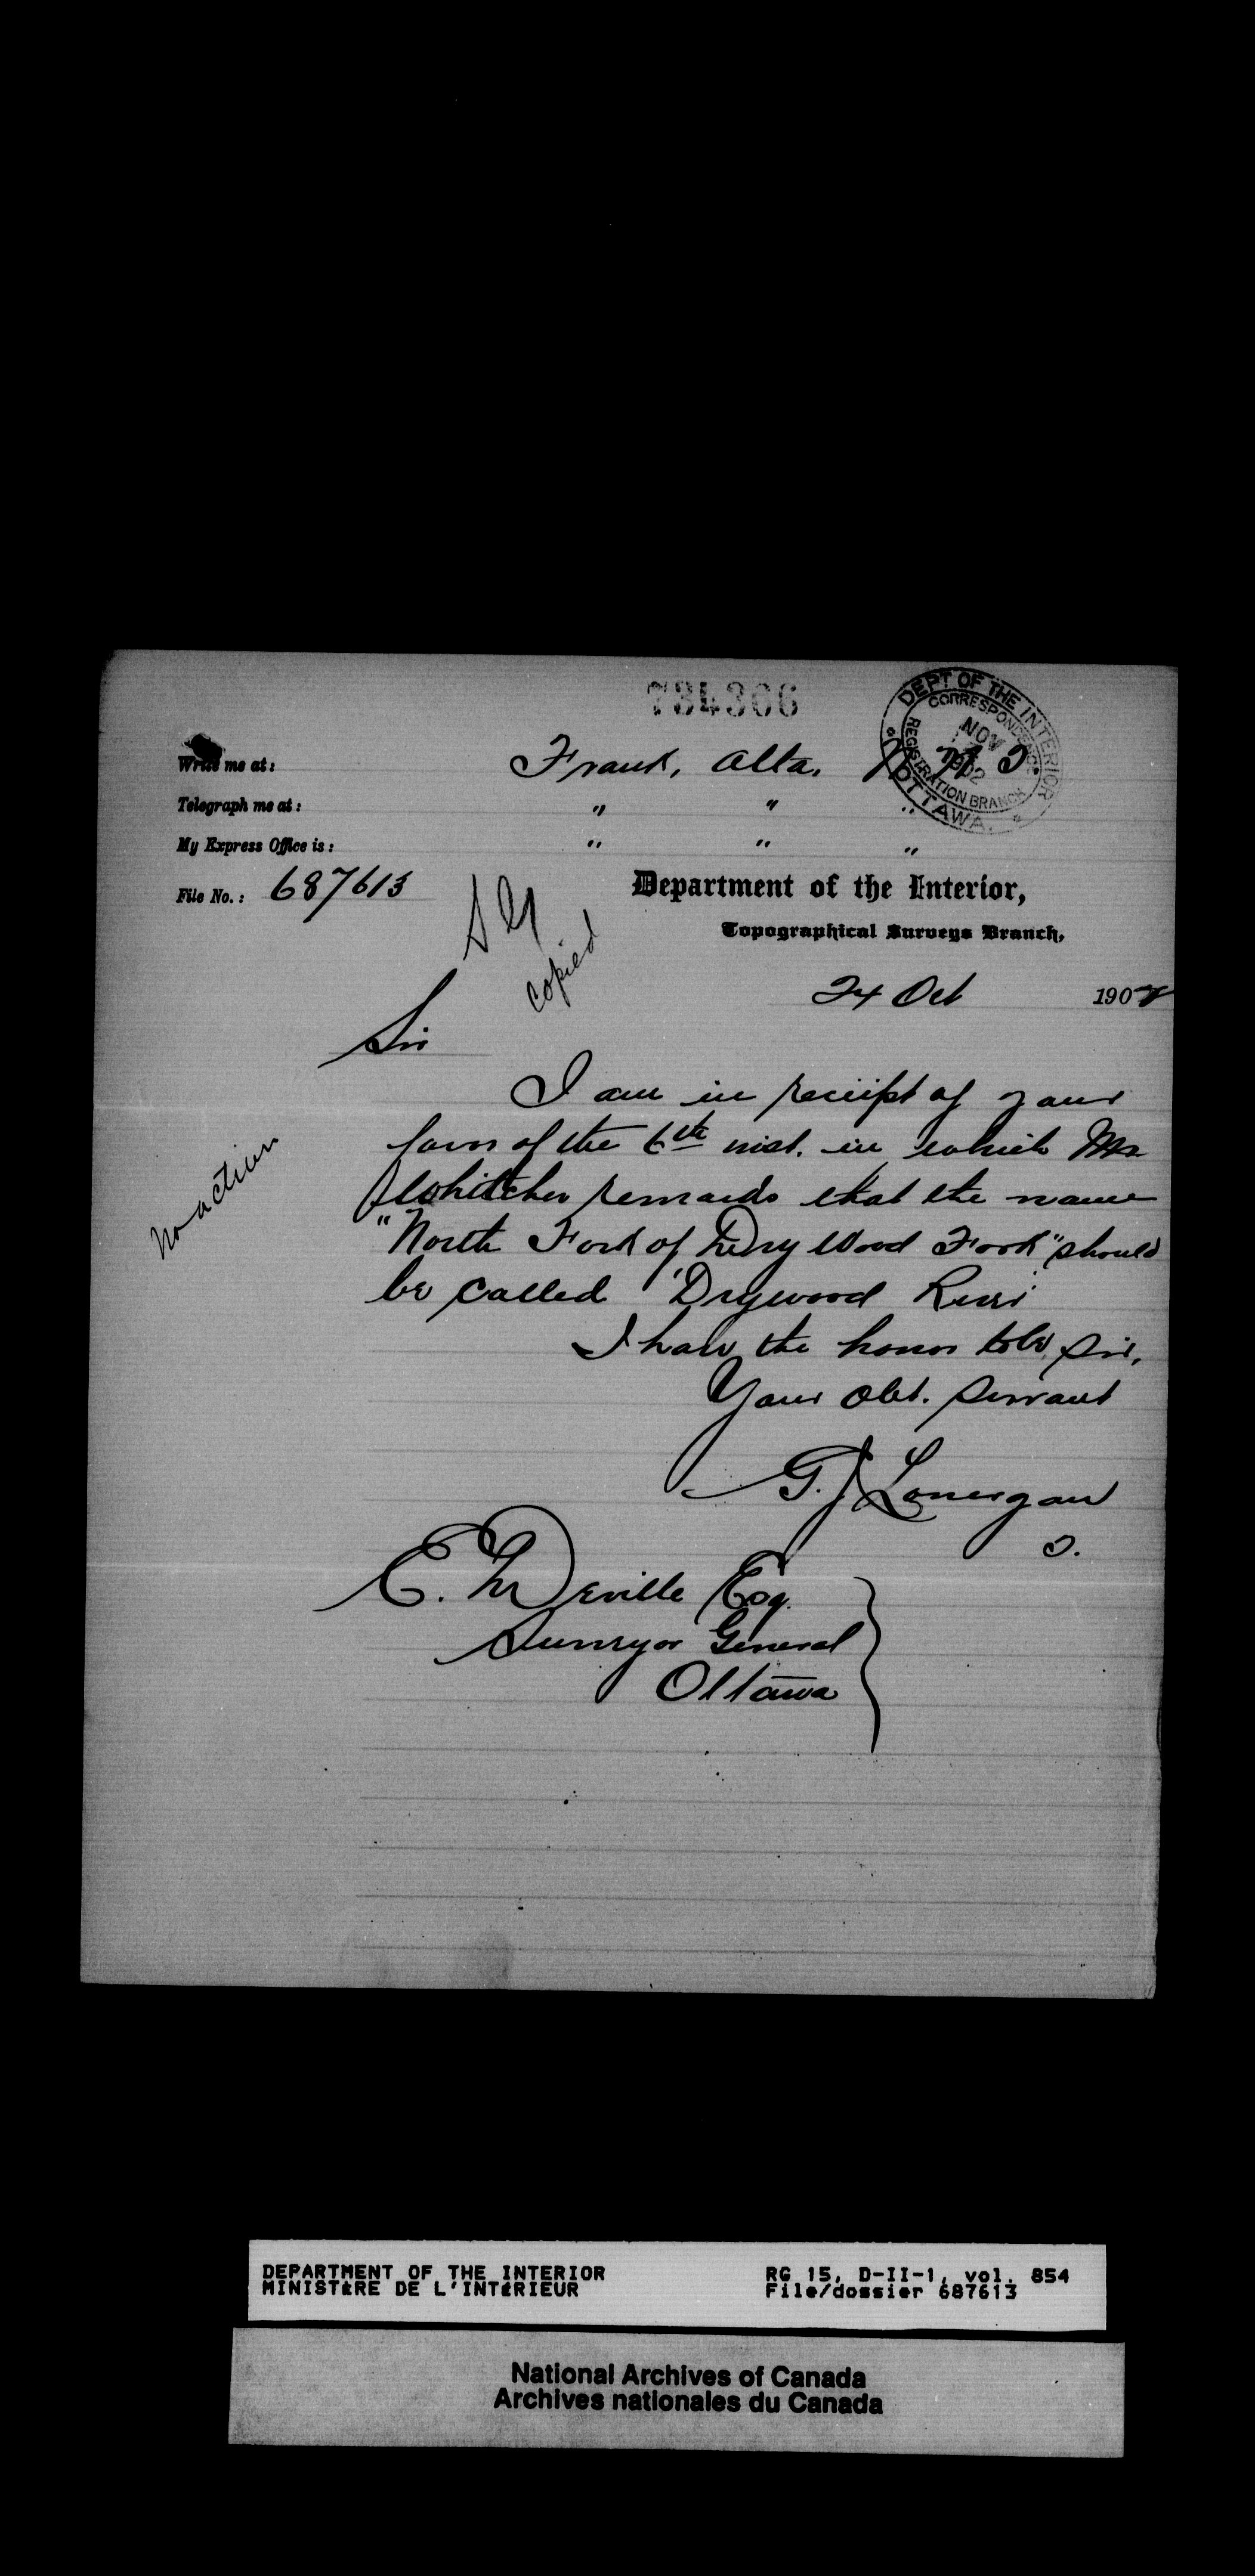 734306
DEPT OF THE INTERIOR
CORRESPONDENCE
NOV
1902
REGISTRATION BRANCH
OTTAWA.
Write me at: Frank, Alta.
Telegraph me at: " " "
My Express Office is: " " "
File No.: 687613
Department of the Interior,
Topographical Surveys Branch,
SG
copied
24 Oct 1902
Sir
I am in receipt of your
favor of the 6th inst. in which Mr
Whitcher remarks that the name
"North Fork of Dry Wood Fork" should
be called 'Drywood River'
No action
I have the honor to be, Sir,
Your obt. servant
G. J. Lonergan
E. Deville Esq.
Surveyor General
Ottawa
DEPARTMENT OF THE INTERIOR RG 15, D-II-1, vol. 854
MINISTÈRE DE L'INTÉRIEUR File/dossier 687613
National Archives of Canada
Archives nationales du Canada